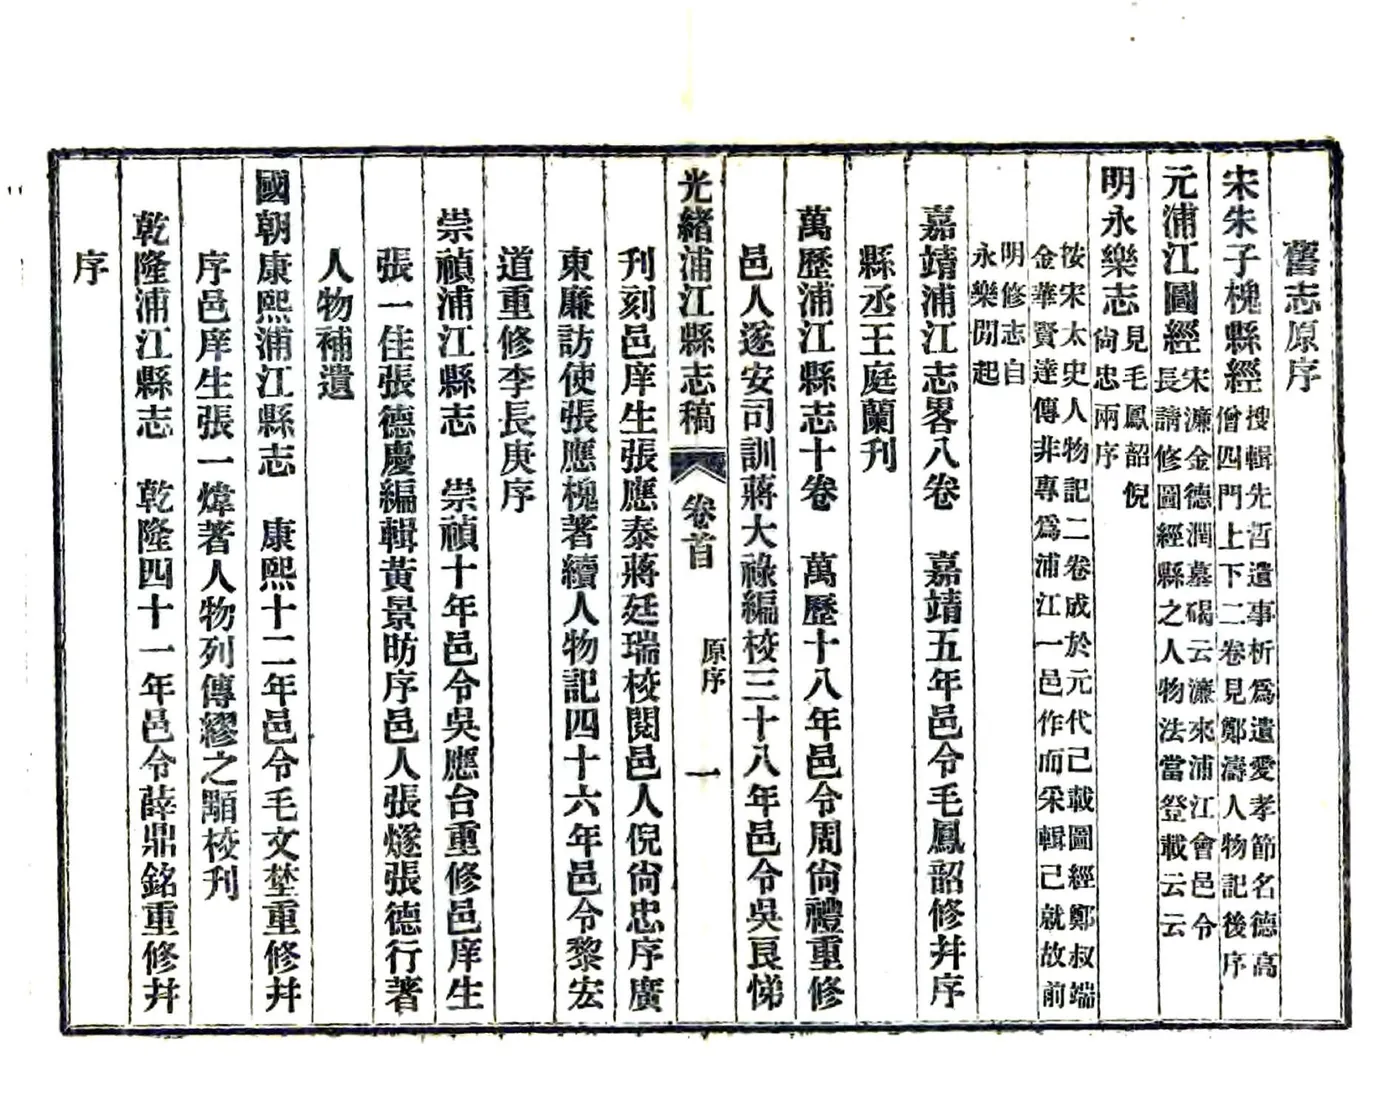 舊志原序
宋朱子槐縣經搜輯先哲遺事析爲遺愛孝節名德高
僧四門上下二卷見鄭濤人物記後序
元浦江圖經宋濂金德潤墓碣云濂來浦江會邑令
長請修圖經縣之人物法當登載云云
明永樂志見毛鳳韶倪
尙忠兩序
按宋太史人物記二卷成於元代己載圖經鄭叔端
金華賢達傳非專爲浦江一邑作而采輯己就故前
明修志自
永樂閒起
嘉靖浦江志畧八卷　嘉靖五年邑令毛鳳韶修幷序
縣丞王庭蘭刊
萬歷浦江縣志十卷　萬歷十八年邑令周尙禮重修
邑人遂安司訓蔣大祿編校三十八年邑令吳良悌
光緒浦江縣志稿　卷首　原序　一
刊刻邑庠生張應泰蔣廷瑞校閱邑人倪尙忠序廣
東廉訪使張應槐著續人物記四十六年邑令黎宏
道重修李長庚序
崇禎浦江縣志　崇禎十年邑令吳應台重修邑庠生
張一佳張德慶編輯黃景昉序邑人張燧張德行著
人物補遺
國朝康熙浦江縣志　康熙十二年邑令毛文埜重修幷
序邑庠生張一煒著人物列傳繆之顒校刊
乾隆浦江縣志　乾隆四十一年邑令薛鼎銘重修幷
序